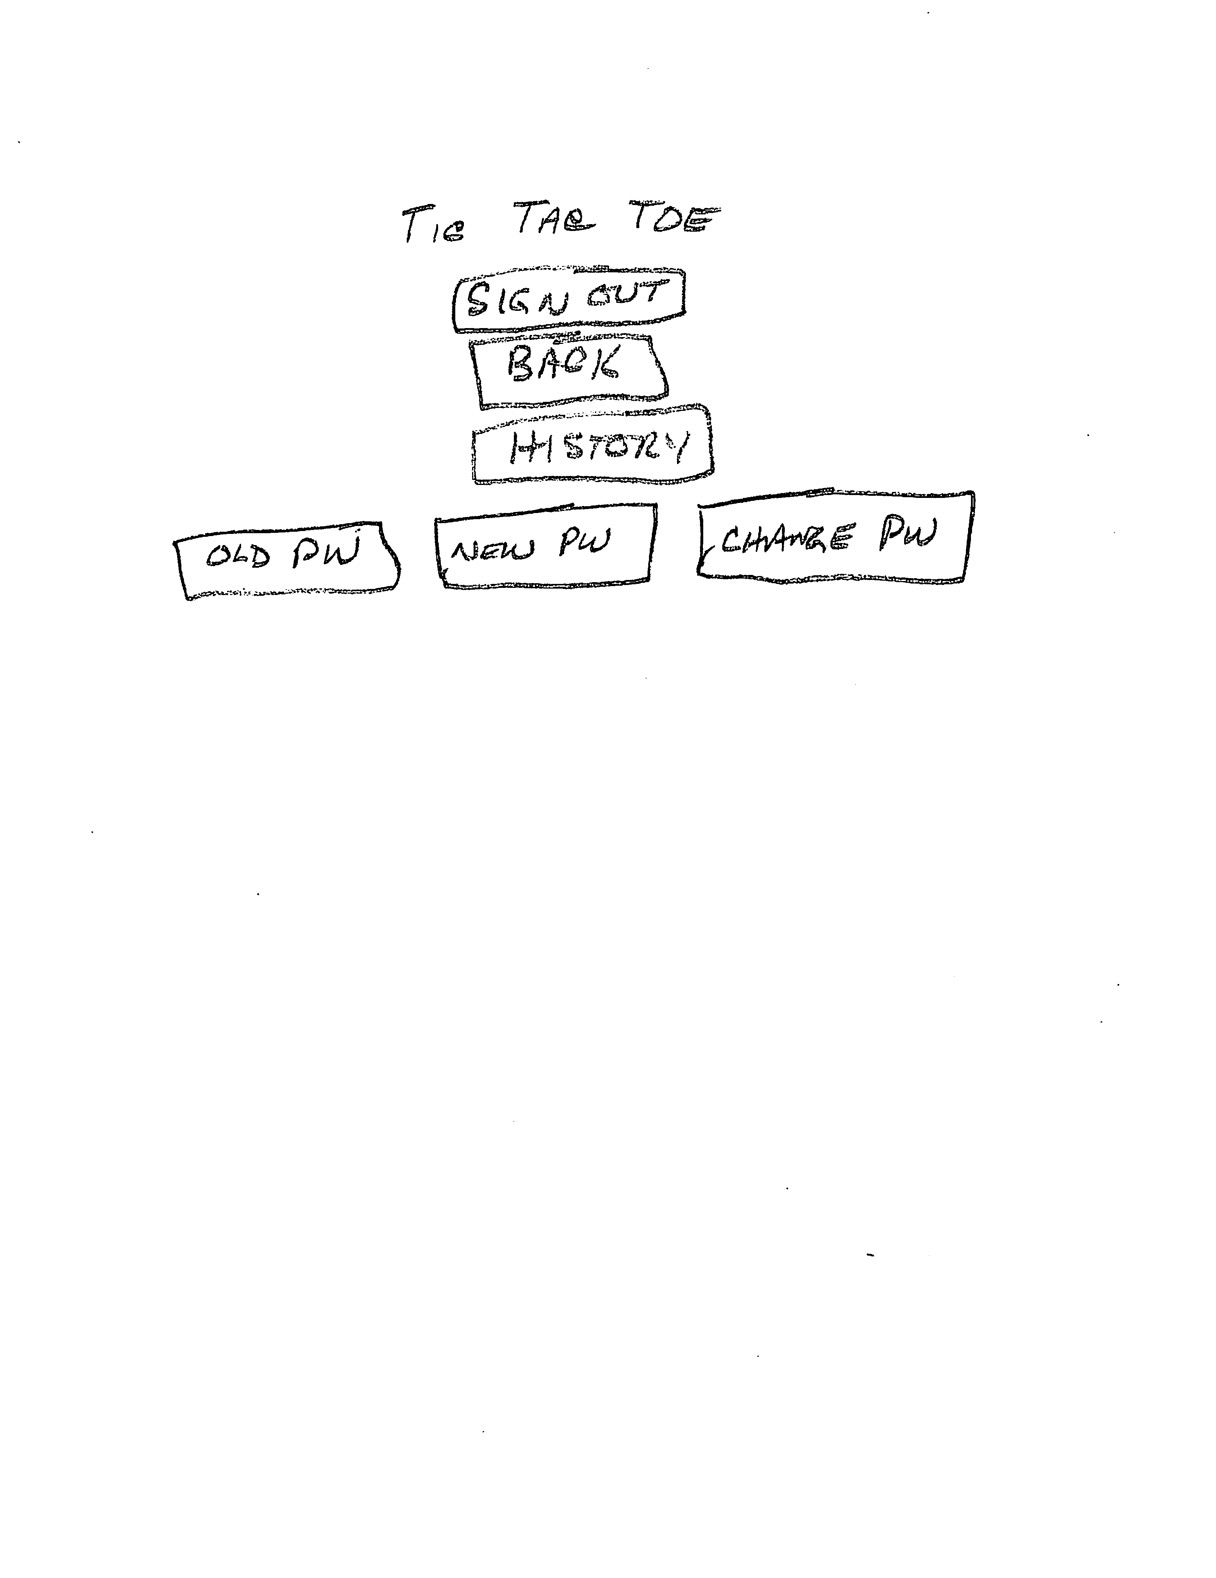 TIC TAC TOE
SIGN OUT
BACK
HISTORY
OLD PW NEW PW CHANGE PW